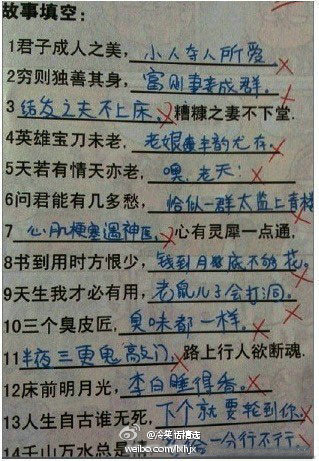 故事填空：
1君子成人之美，小人夺人所爱。
2穷则独善其身，富则妻妾成群。
3结发之夫不上床，糟糠之妻不下堂.
4英雄宝刀未老，老娘丰韵尤存。
5天若有情天亦老，噢，老天！
6问君能有几多愁，恰似一群太监上青楼
7心肌梗塞遇神医，心有灵犀一点通，
8书到用时方恨少，钱到月底不够花。
9天生我才必有用，老鼠儿子会打洞。
10三个臭皮匠，臭味都一样。
11半夜三更鬼敲门，路上行人欲断魂.
12床前明月光，李白睡得香。
13人生自古谁无死，下个就要轮到你。
14千山万水总是 给一分行不行。
@冷笑话精选
weibo.com/lxhjx